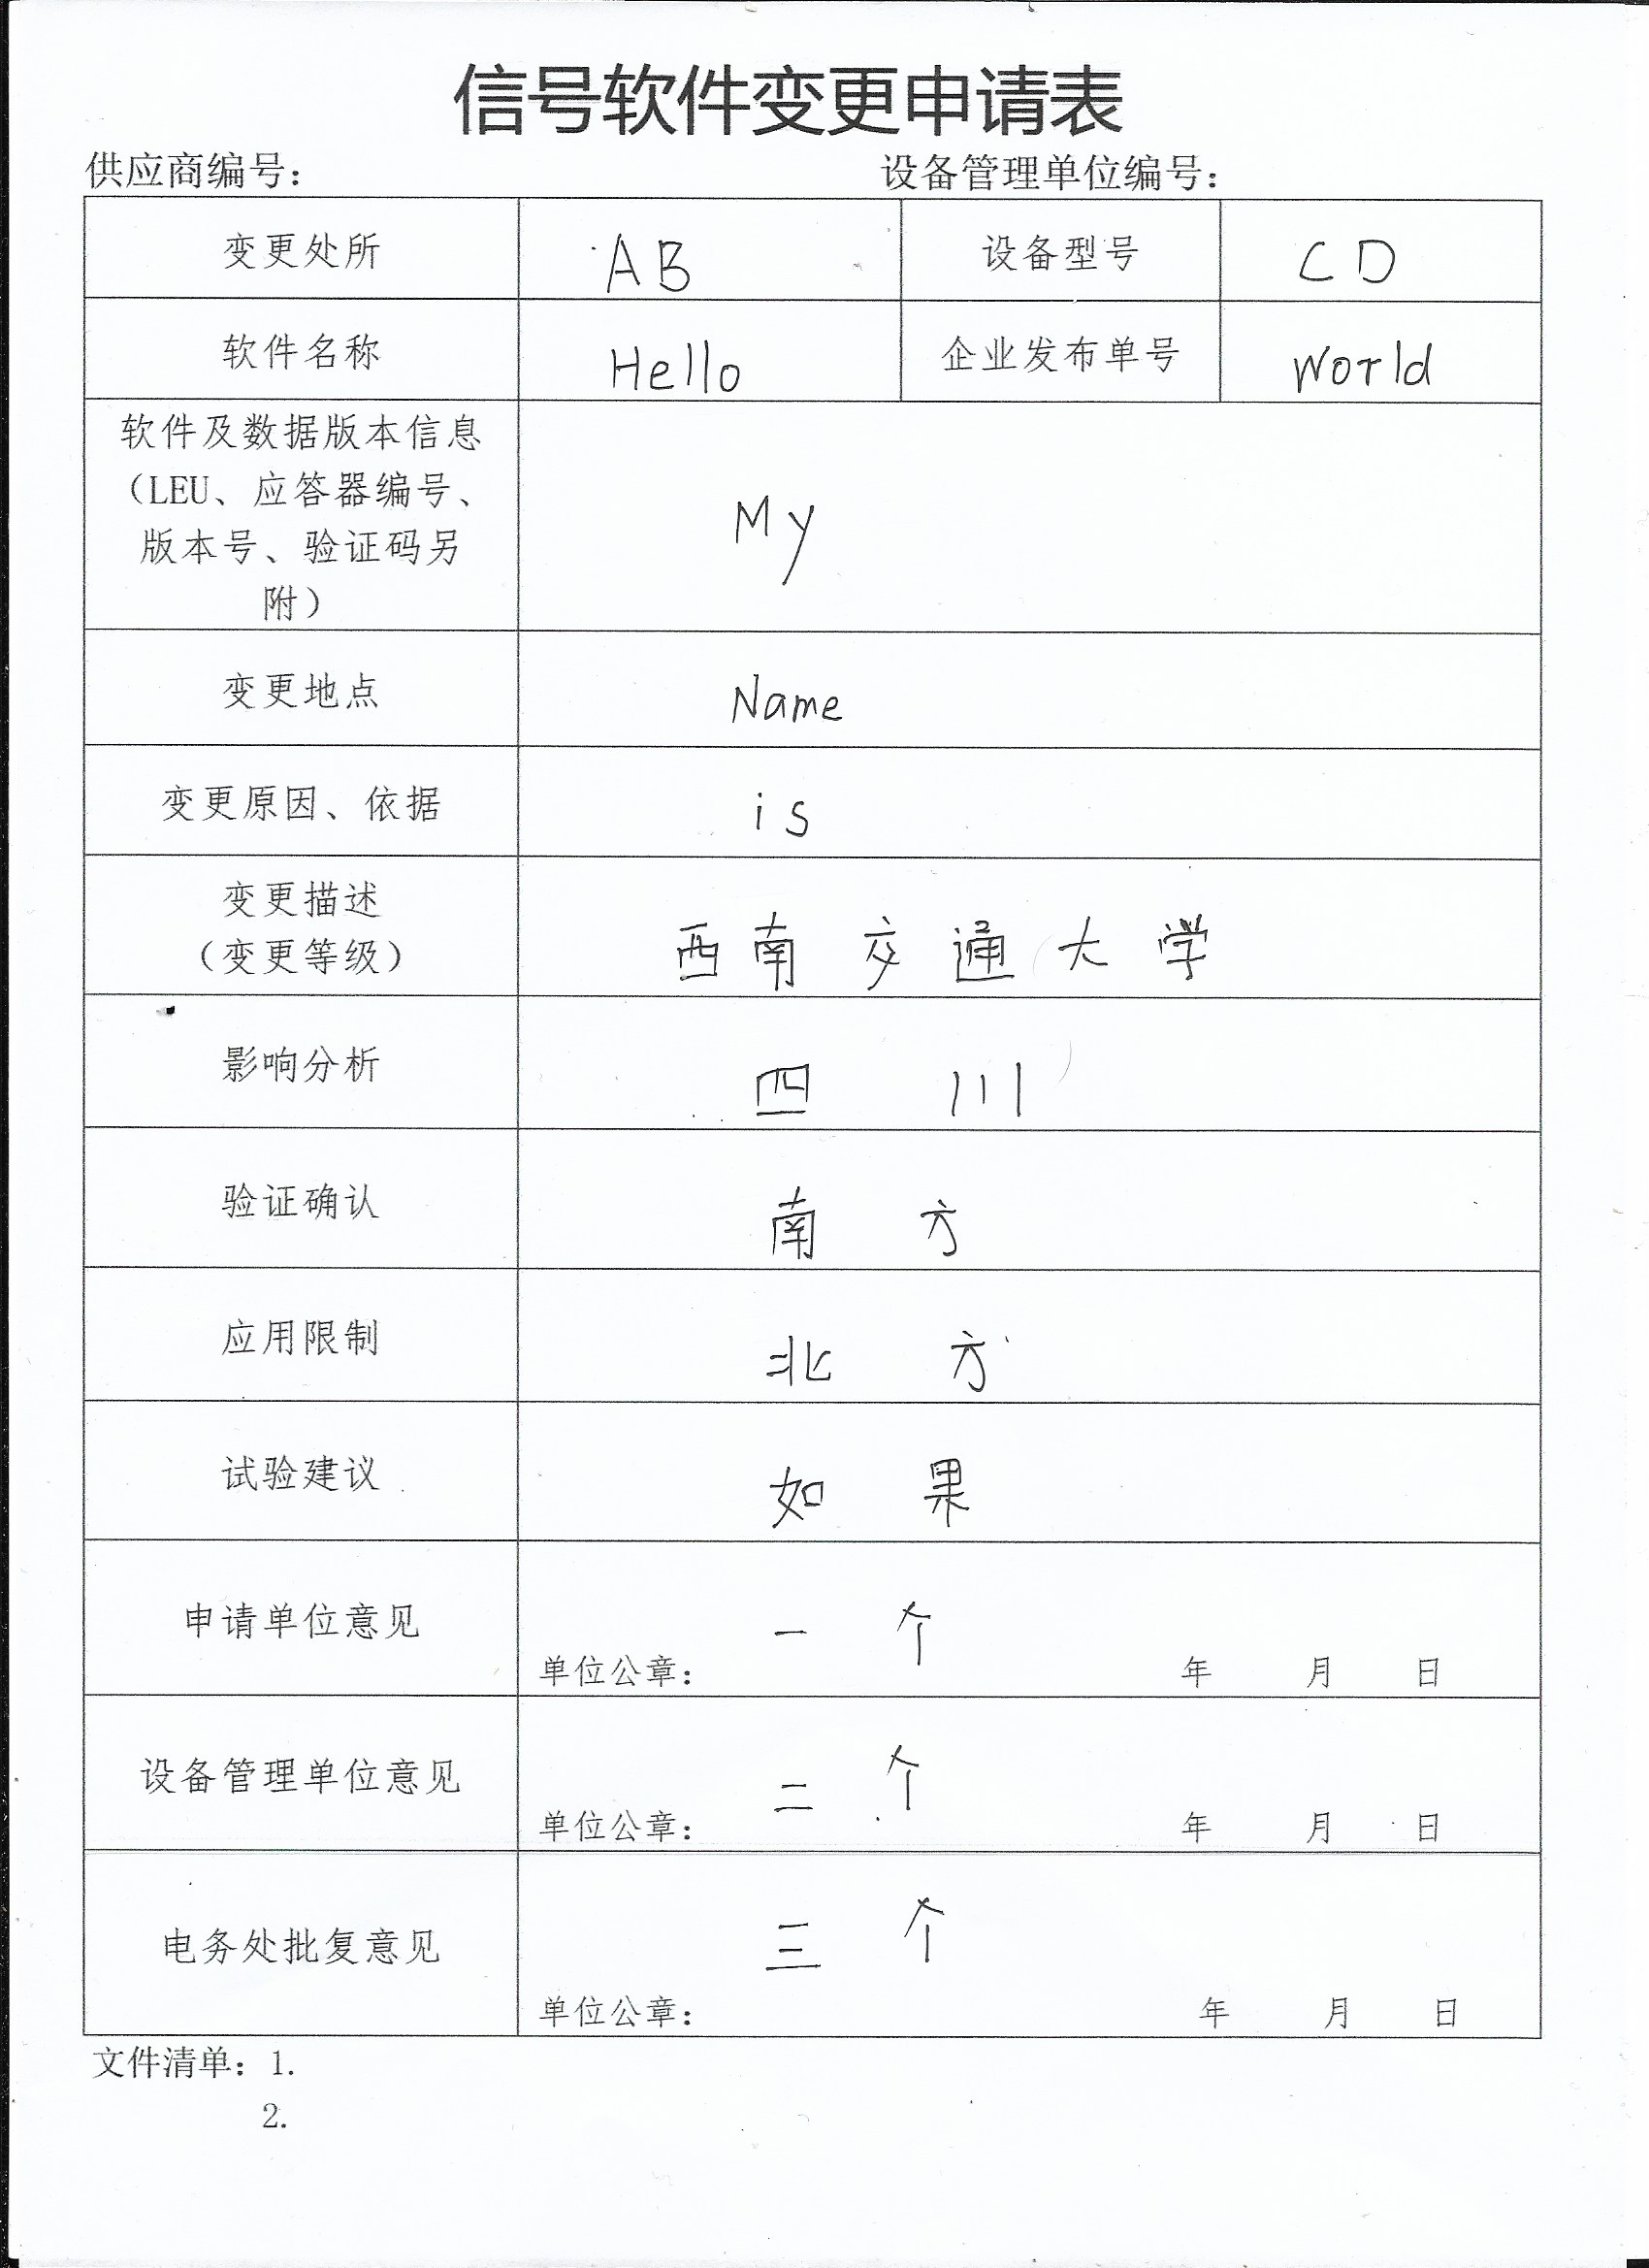 信号软件变更申请表
供应商编号： 设备管理单位编号：
变更处所 AB 设备型号 CD
软件名称 Hello 企业发布单号 World
软件及数据版本信息
（LEU、应答器编号、
版本号、验证码另
附） My
变更地点 Name
变更原因、依据 is
变更描述
（变更等级） 西南交通大学
影响分析 四川
验证确认 南方
应用限制 北方
试验建议 如果
申请单位意见 一个
单位公章： 年 月 日
设备管理单位意见 二个
单位公章： 年 月 日
电务处批复意见 三个
单位公章： 年 月 日
文件清单：1.
2.